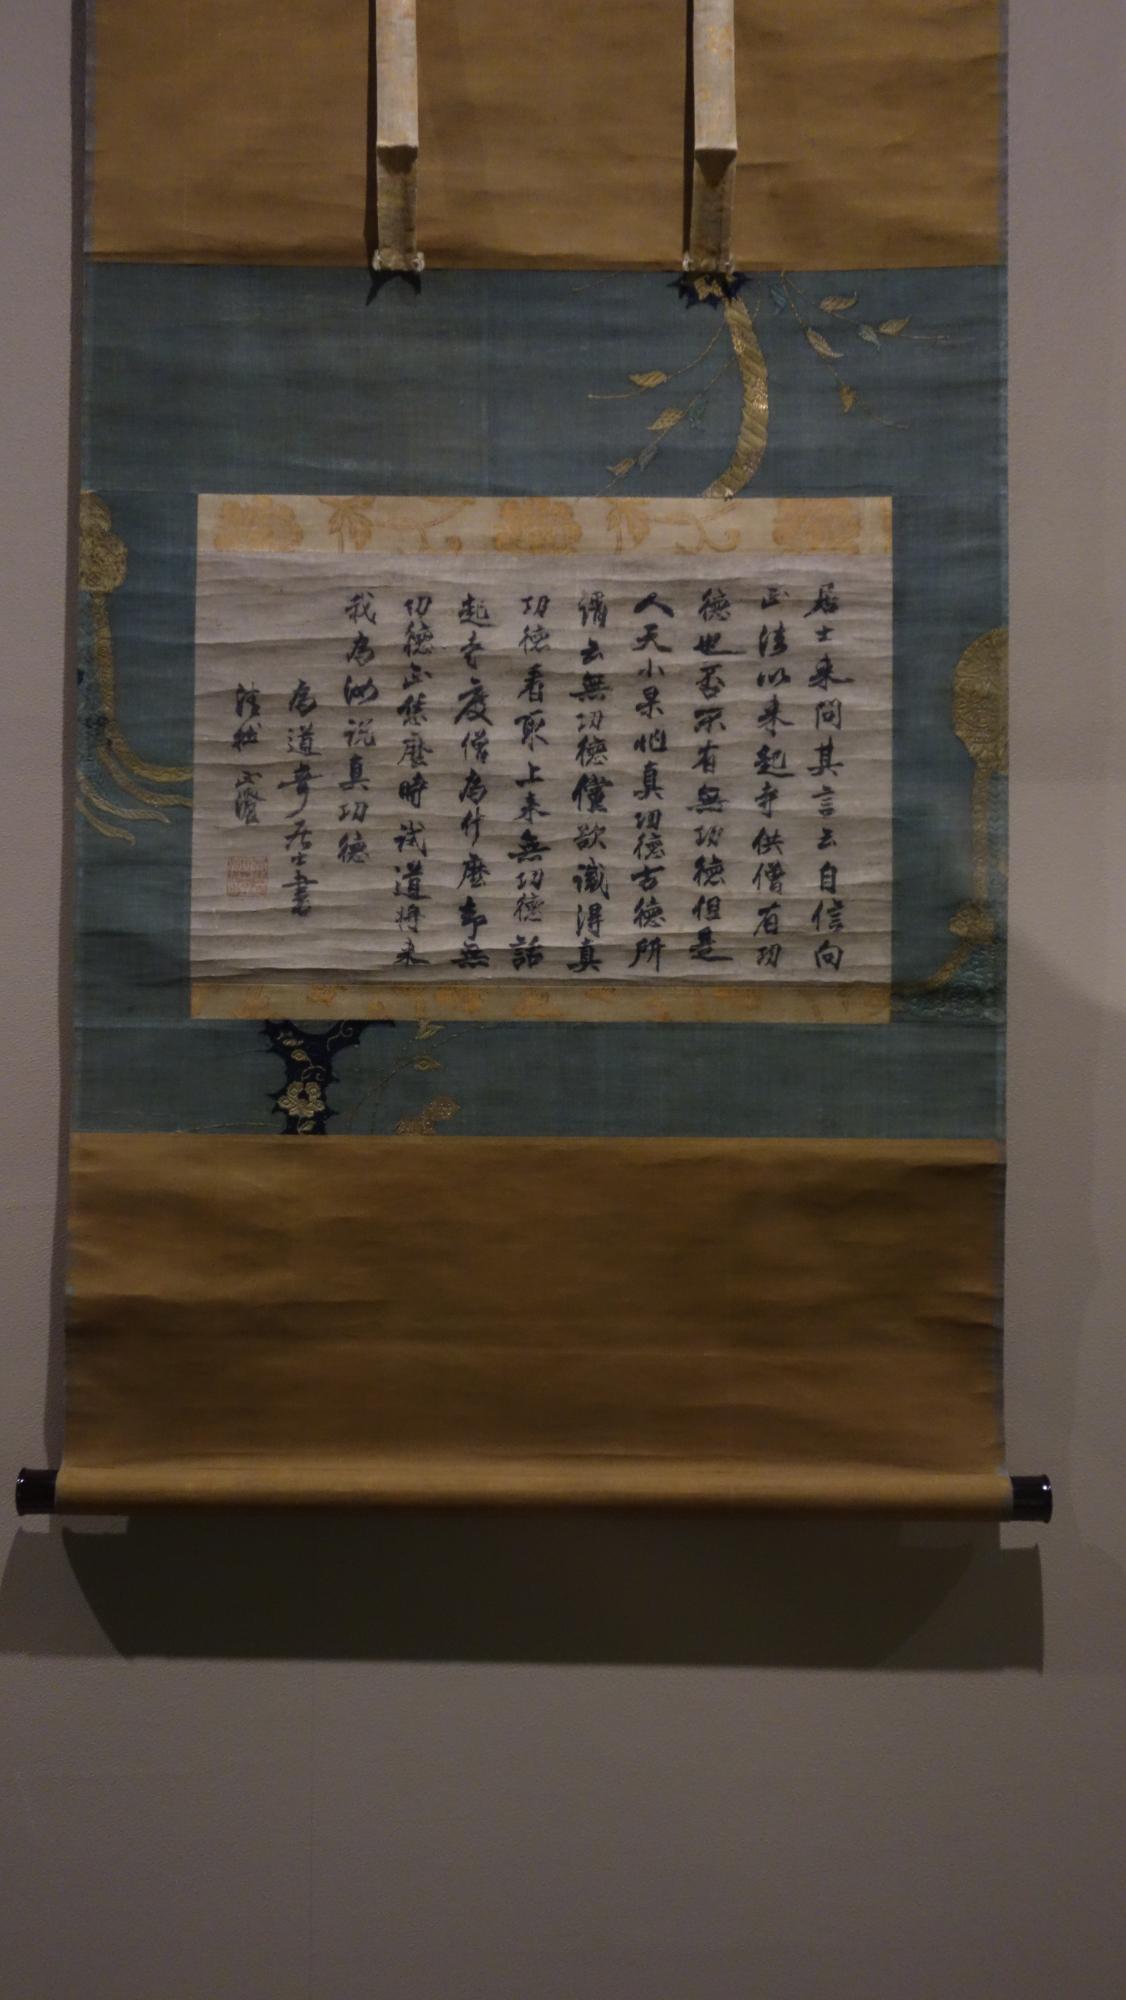 居士来問其言云自信向
正法以来起寺供僧有功
德也否不有無功德但是
人天小果惟真功德古德所
謂云無功德儻欲識得真
功德看取上来無功德話
起寺度僧為什麼却無
功德正恁麼時試道将来
我為汝説真功德
為道奇居士書
清拙正澄